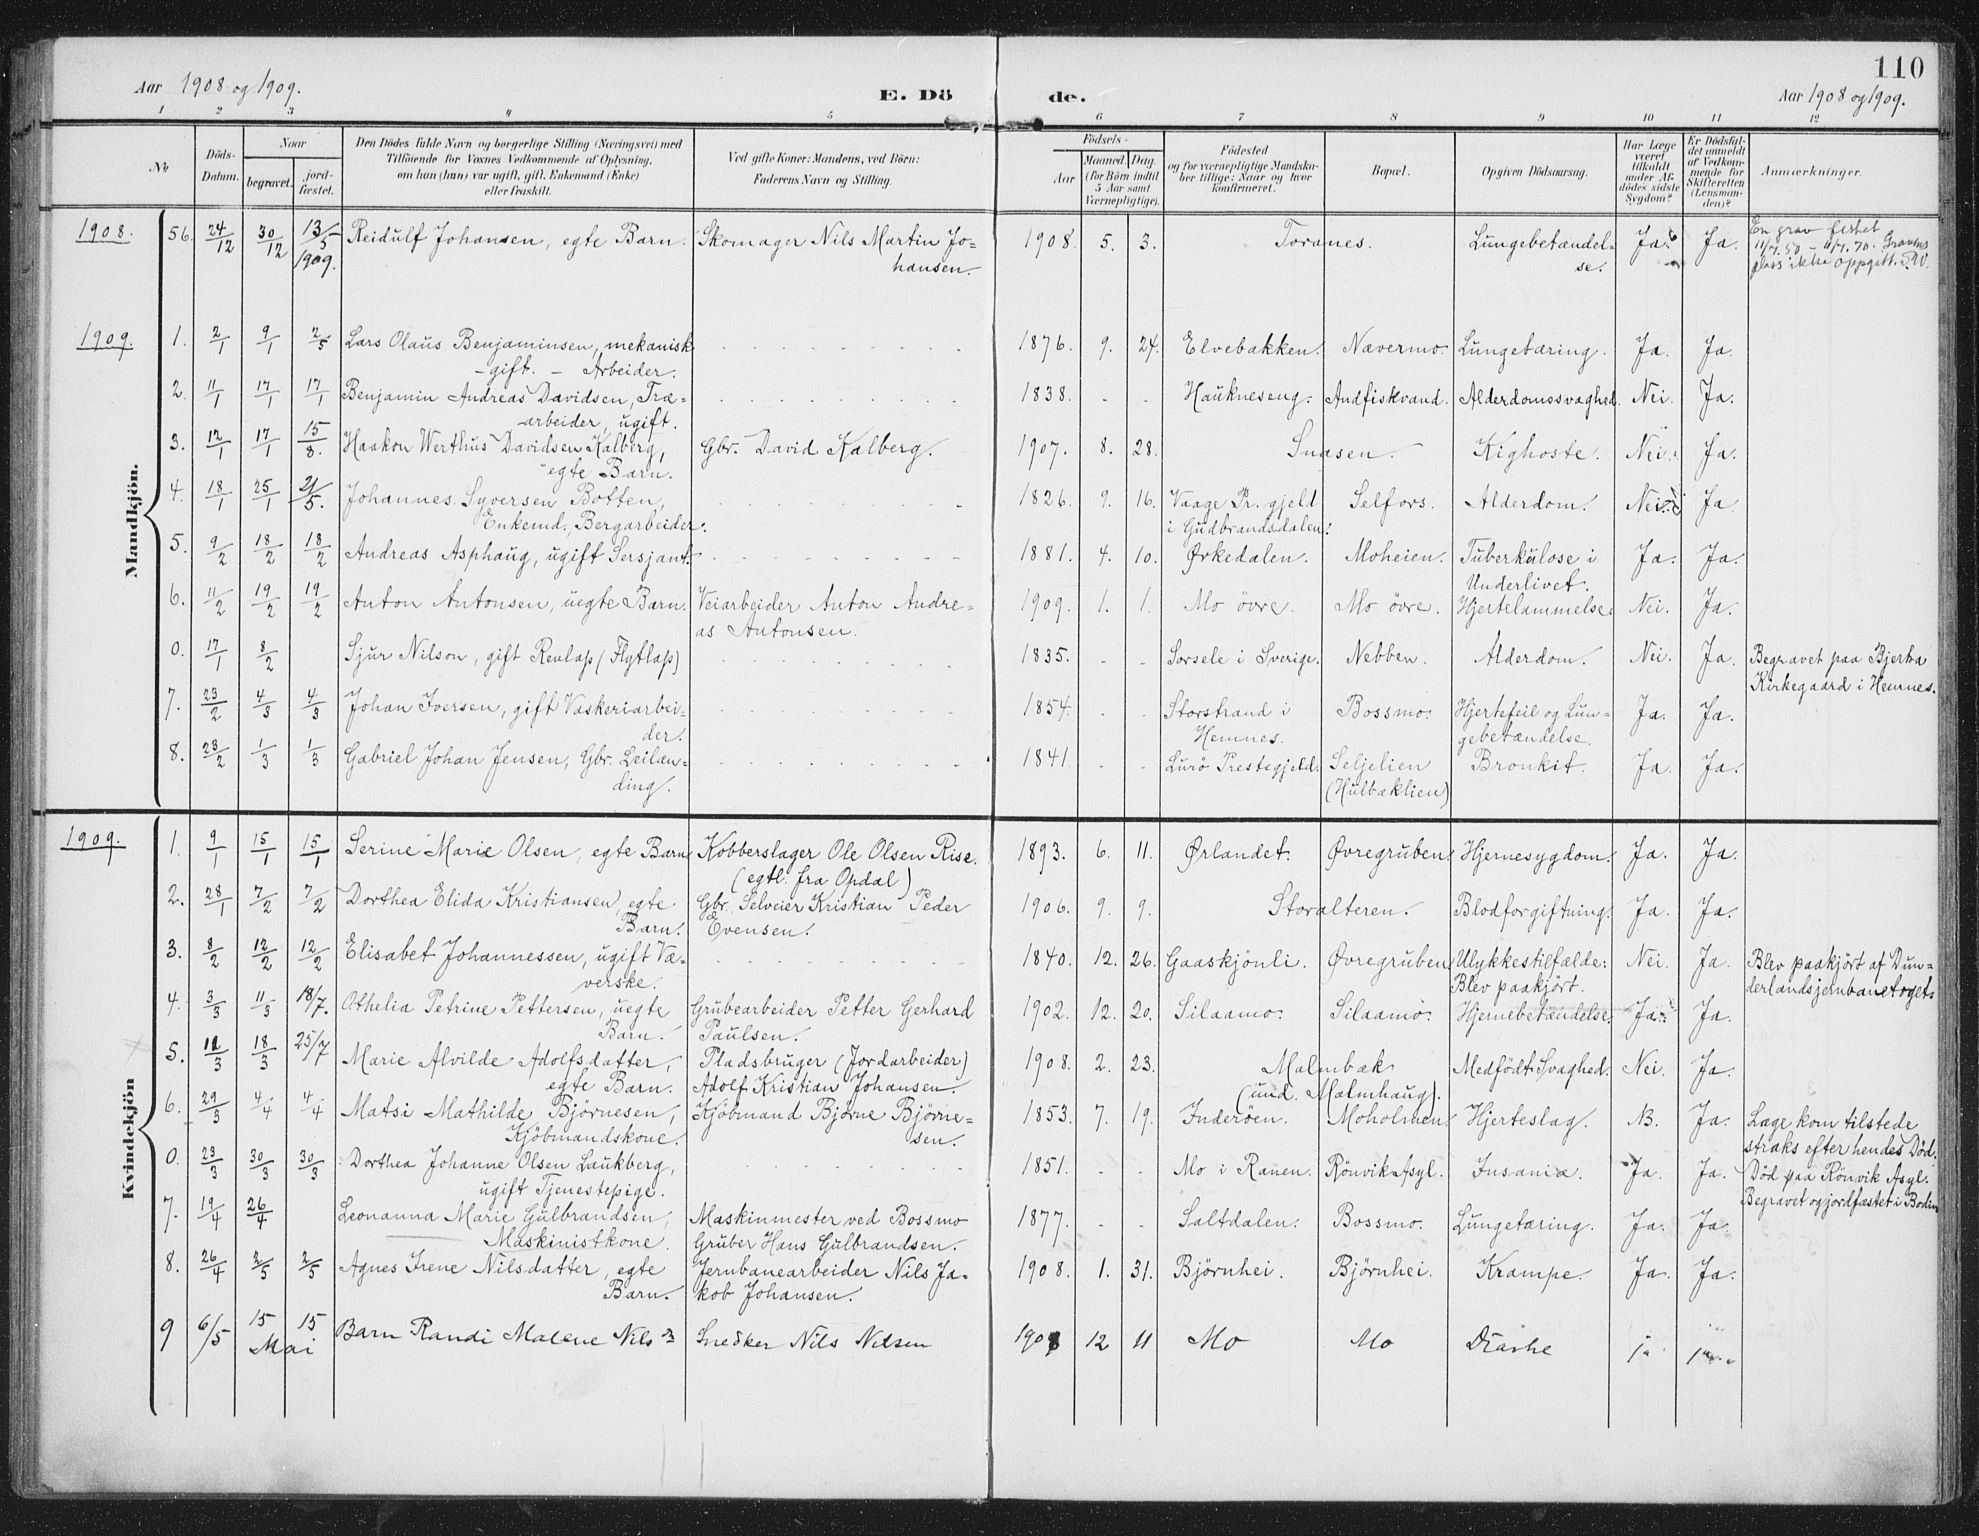 110
Aar 1908 og 1909. E. Dö de. Aar 1908 og 1909.
1 2 3 4 5 6 7 8 9 10 11 12
No. Döds-Datum. Naar begravet. jord-fæstet. Den Dödes fulde Navn og borgerlige Stilling (Næringsvei) med Tilföiende for Voxnes Vedkommende af Oplysning, om han (hun) var ugift, gift, Enkemand (Enke) eller fraskilt. Ved gifte Koner: Mandens, ved Börn: Faderens Navn og Stilling. Födsels- Aar Maaned. Dag. (for Börn indtil 5 Aar samt Værnepligtige). Födested og for værnepligtige Mandskaber tillige: Naar og hvor konfirmeret. Bopæl. Opgiven Dödsaarsag. Har Læge været tilkaldt under Afdödes sidste Sygdom? Er Dödsfaldet anmeldt af Vedkommende for Skifteretten (Lensmanden)? Anmærkninger.
Mandkjön.
1908. 56 24/12 30/12 13/5 1909. Reidulf Johansen, egte Barn. Skomager Nils Martin Johansen. 1908. 5. 3. Toranes. Lungebetændelse. Ja. Ja. En grav festet 11/7.50 – 11/7.70. Gravens plass ikke oppgitt.
1909. 1. 2/1 9/1 2/5 Lars Olaus Benjaminsen, mekanisk – gift. – Arbeider. 1876. 9. 24. Elvebakken. Nævermo. Lungetæring. Ja. Ja.
2. 11/1 17/1 17/1 Benjamin Andreas Davidsen, Træarbeider, ugift. 1838. - - Haukneseng. Andfiskvand. Alderdomssvaghed. Nei. Ja.
3. 12/1 17/1 15/8. Haakon Werthus Davidsen Kalberg, egte Barn. Gbr. David Kalberg. 1907. 8. 28. Snasen. Kighoste. Nei. Ja.
4. 18/1 25/1 21/5. Johannes Syversen Botten, Enkemd., Bergarbeider. 1826. 9. 16. Vaage Pr.gjeld i Gudbrandsdalen. Selfors. Alderdom. Nei. Ja
5. 9/2 18/2 18/2 Andreas Asphaug, ugift Sersjant. 1881. 4. 10. Ørkedalen. Moheien. Tuberkulose i Underlivet. Ja. Ja.
6. 11/2 19/2 19/2 Anton Antonsen, uegte Barn. Veiarbeider Anton Andreas Antonsen. 1909. 1. 1. Mo övre. Mo övre. Hjertelammelse. Nei. Ja.
0. 17/1 8/2 Sjur Nilson, gift Renlap (Flytlap) 1835. - - Sorsele i Sverige. Nebben. Alderdom. Nei. Ja. Begravet paa Bjerka Kirkegaard i Hemnes.
7. 23/2 4/3 4/3 Johan Iversen, gift Vaskeriarbeider. 1854. - - Storstrand i Hemnes. Bossmo. Hjertefeil og Lungebetændelse. Ja. Ja.
8. 23/2 1/3 1/3 Gabriel Johan Jensen, Gbr. Leilænding. 1841. - - Lurö Prestegjeld. Seljelien (Hulbæklien) Bronkit. Ja. Ja.
Kvindekjön
1909. 1. 9/1 15/1 15/1 Serine Marie Olsen, egte Barn. Kobberslager Ole Olsen Rise. (egtl. fra Opdal) 1893. 6. 11. Ørlandet. Øvregruben. Hjernesygdom. Ja. Ja.
2. 28/1 7/2 7/2 Dorthea Elida Kristiansen, egte Barn. Gbr. Selveier Kristian Peder Evensen. 1906. 9. 9. Storalteren. Blodforgiftning. Ja. Ja.
3. 8/2 12/2 12/2 Elisabet Johannessen, ugift Væverske. 1840. 12. 26. Gaaskjönli. Øvregruben. Ulykkestilfælde: Blev paakjört. Nei. Ja. Blev paakjört af Dunderlandsjernbanetoget.
4. 3/3 11/3 18/7. Othelia Petrine Pettersen, uegte Barn. Grubearbeider Petter Gerhard Paulsen. 1902. 12. 20. Silaamo. Silaamo. Hjernebetændelse. Ja. Ja.
5. 12/3 18/3 25/7 Marie Alvilde Adolfsdatter, egte Barn. Pladsbruger (Jordarbeider) Adolf Kristian Johansen. 1908. 2. 23. Malmbæk (und. Malmhaug). Medfödt Svaghed. Nei. Ja.
6. 29/3 4/4 4/4 Matsi Mathilde Björnesen, Kjöbmandskone. Kjöbmand Björne Björnesen. 1853. 7. 19. Inderöen. Moholmen. Hjerteslag. N. Ja. Læge kom tilstede straks efter hendes Död.
0. 23/3 30/3 30/3 Dorthea Johanne Olsen Laukberg, ugift Tjenestepige. 1851. - - Mo i Ranen. Rönvik Asyl. Insania. Ja. Ja. Död paa Rönvik Asyl. Begravet og jordfæstet i Bodin
7. 19/4 26/4 Leonanna Marie Gulbrandsen, Maskinistkone. Maskinmester ved Bossmo Gruber Hans Gulbrandsen. 1877. - - Saltdalen. Bossmo. Lungetæring. Ja. Ja.
8. 26/4 2/5 2/5 Agnes Irene Nilsdatter, egte Barn. Jernbanearbeider Nils Jakob Johansen. 1908. 1. 31. Björnhei. Björnhei. Krampe. Ja. Ja.
9 6/5 15 15 Mai Barn Randi Malene Nilsn Snedker Nils Nilsen 1908 12 11 Mo Mo Diarhe ja ja